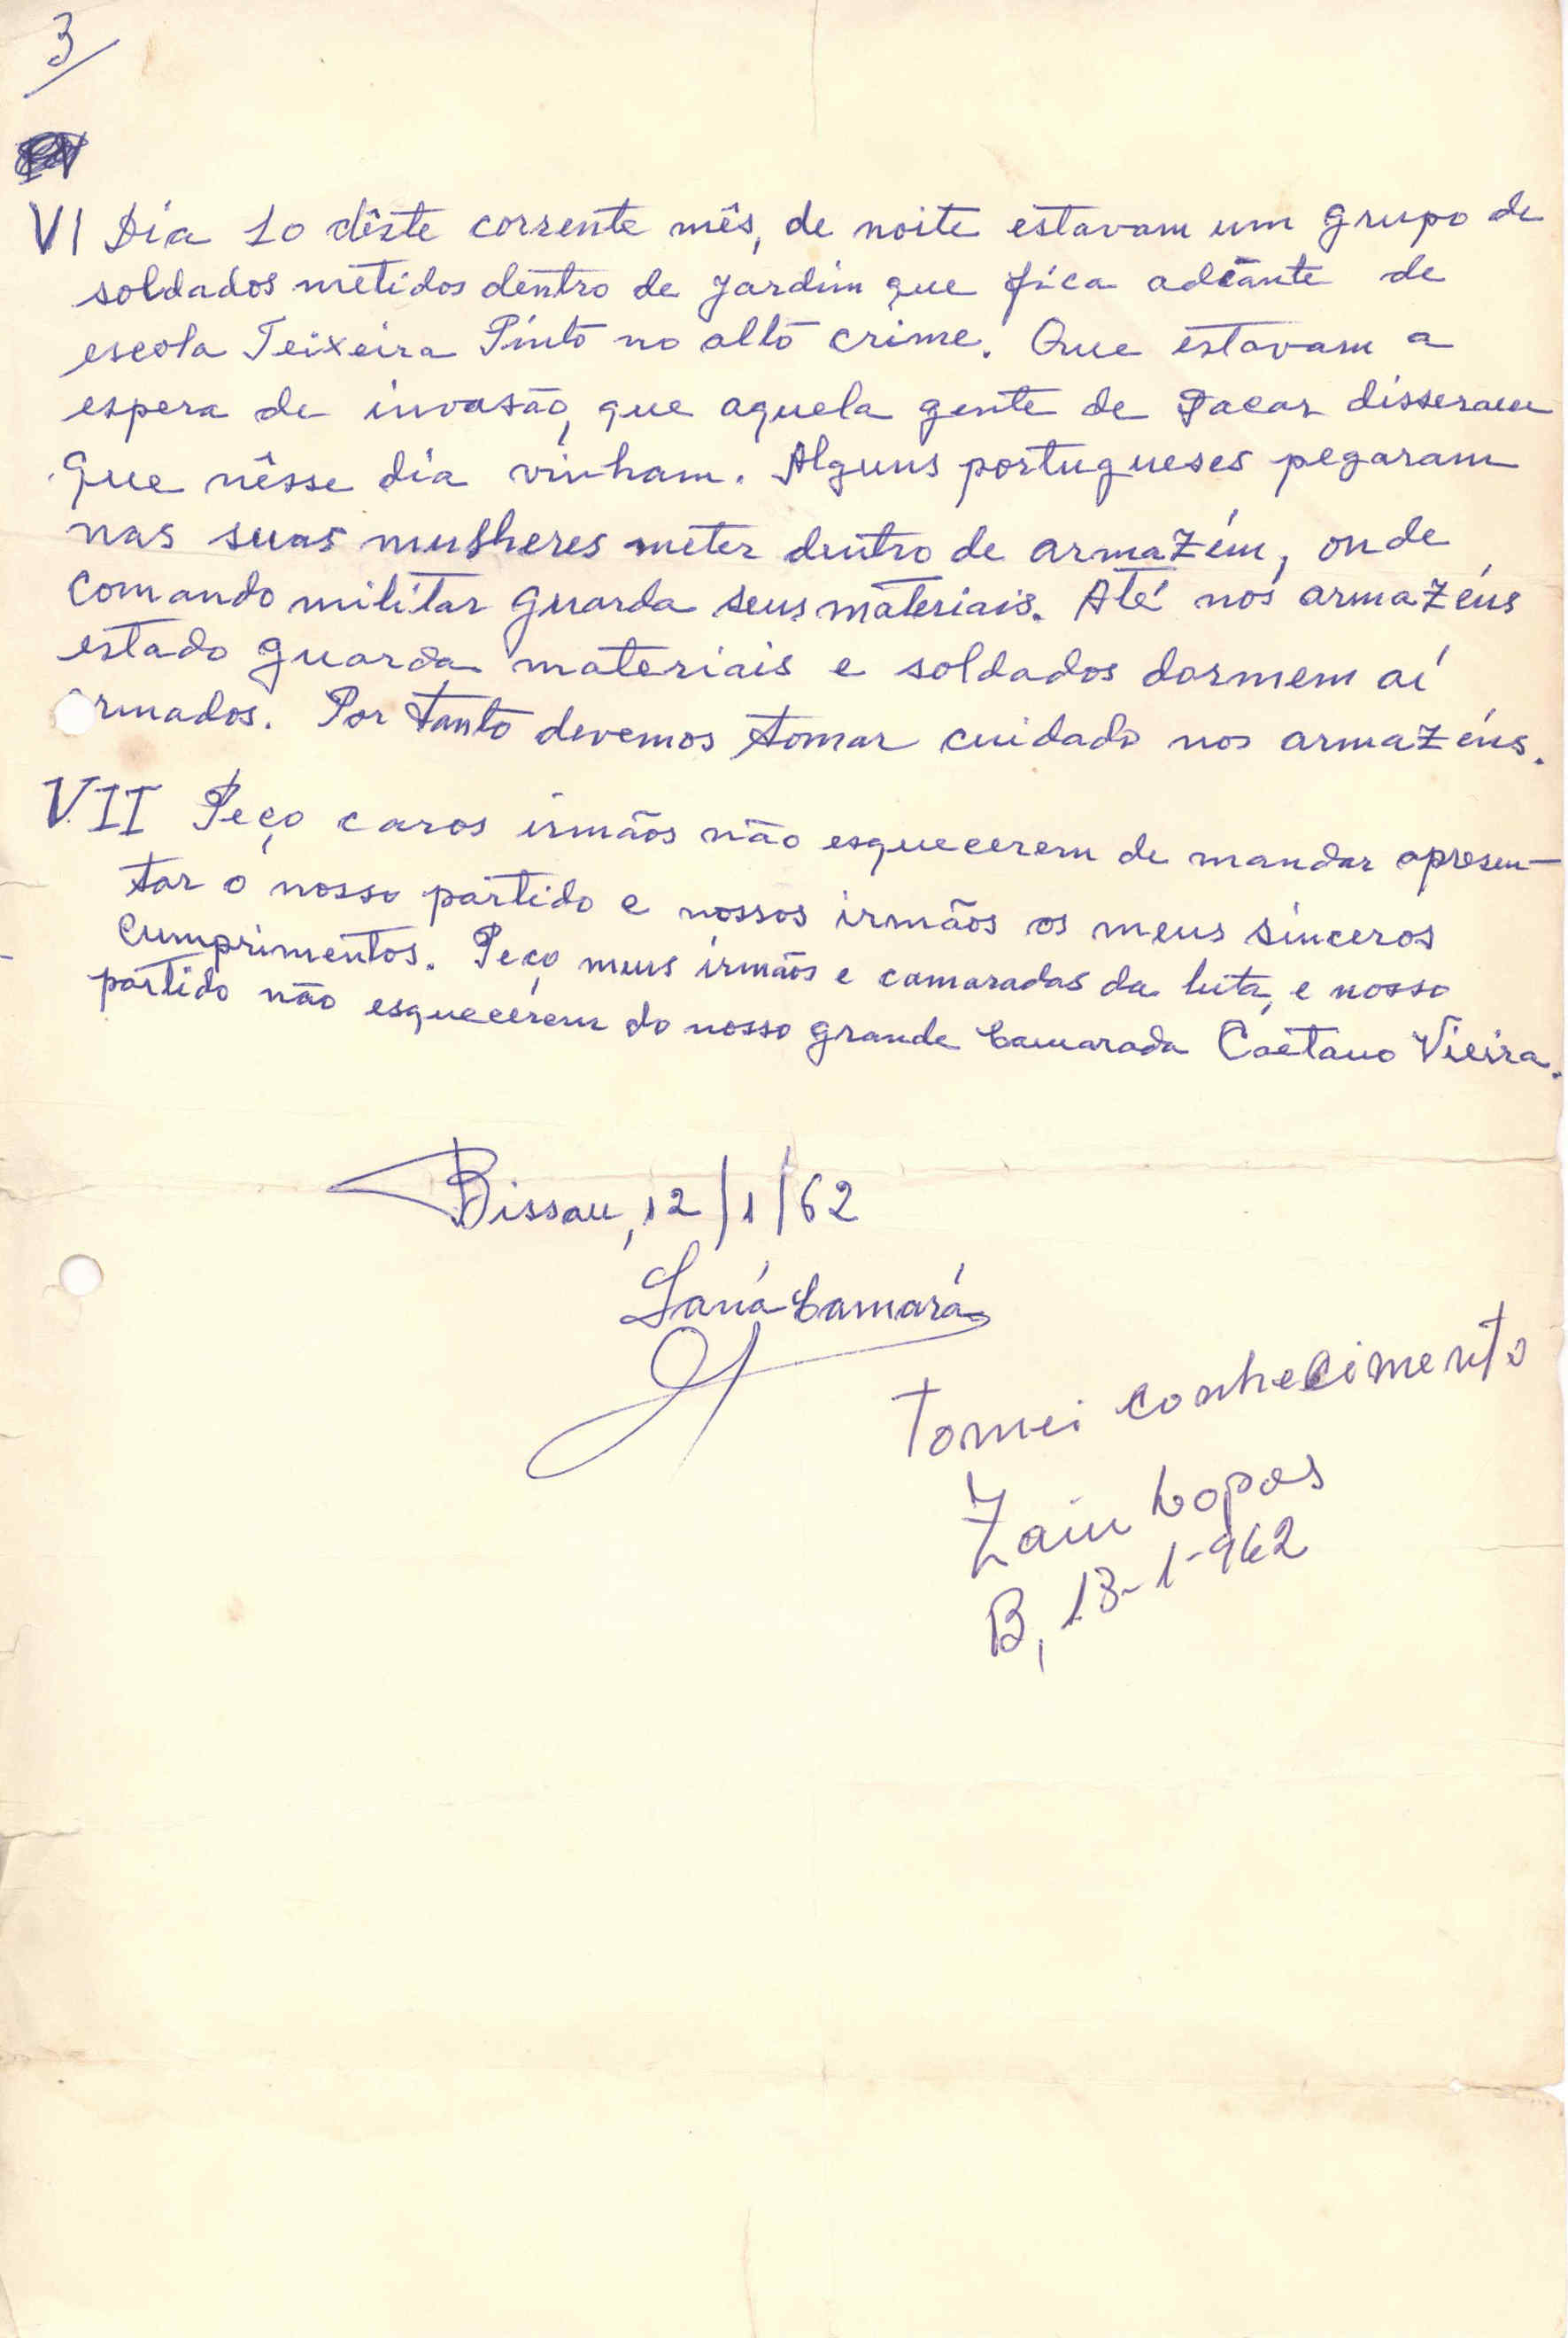 3
VI Dia 10 dêste corrente mês, de noite estavam um grupo de
soldados metidos dentro de jardim que fica adeante de
escola Teixeira Pinto no alto crime. Que estavam a
espera de invasão, que aquela gente de Dacar disseram
que nêsse dia vinham. Alguns portugueses pegaram
nas suas mulheres meter dentro de armazém, onde
comando militar guarda seus materiais. Até nos armazéns
estado guarda materiais e soldados dormem aí
rmados. Por tanto devemos tomar cuidado nos armazéns.
VII Peço caros irmãos não esquecerem de mandar apresen-
tar o nosso partido e nossos irmãos os meus sinceros
cumprimentos. Peço meus irmãos e camaradas da luta, e nosso
partido não esquecerem do nosso grande Camarada Caetano Vieira.
Bissau, 12/1/62
Laná Camará
Tomei conhecimento
Zain Lopes
B, 13-1-962